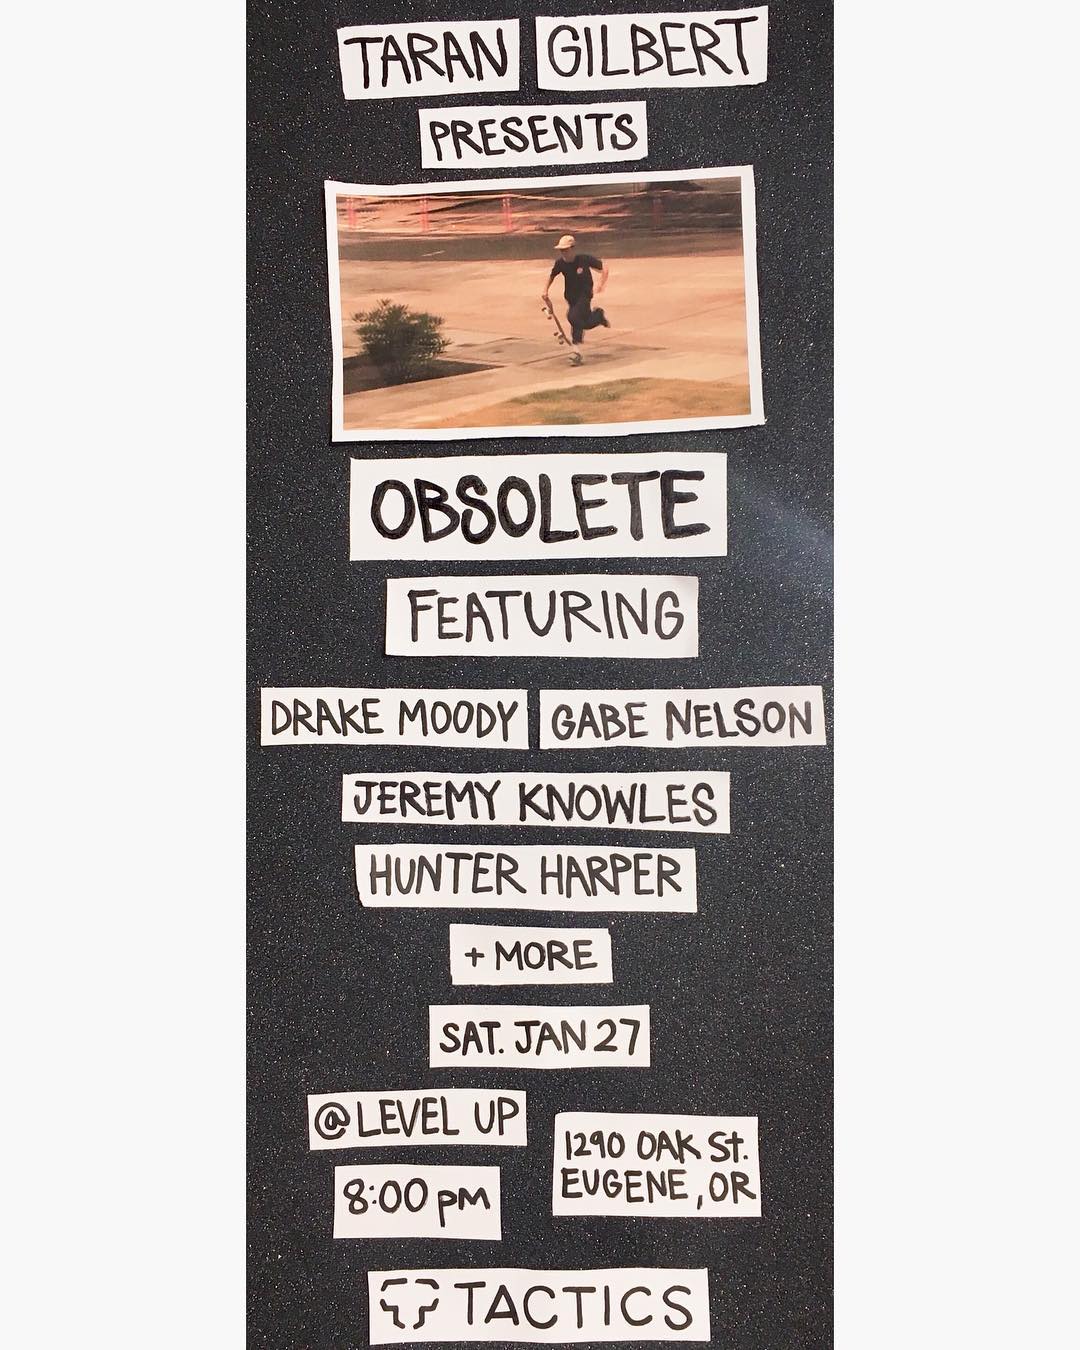 TARAN GILBERT
PRESENTS
OBSOLETE
FEATURING
DRAKE MOODY GABE NELSON
JEREMY KNOWLES
HUNTER HARPER
+ MORE
SAT. JAN 27
@ LEVEL UP
8:00 pm
1290 OAK St.
EUGENE, OR
TACTICS